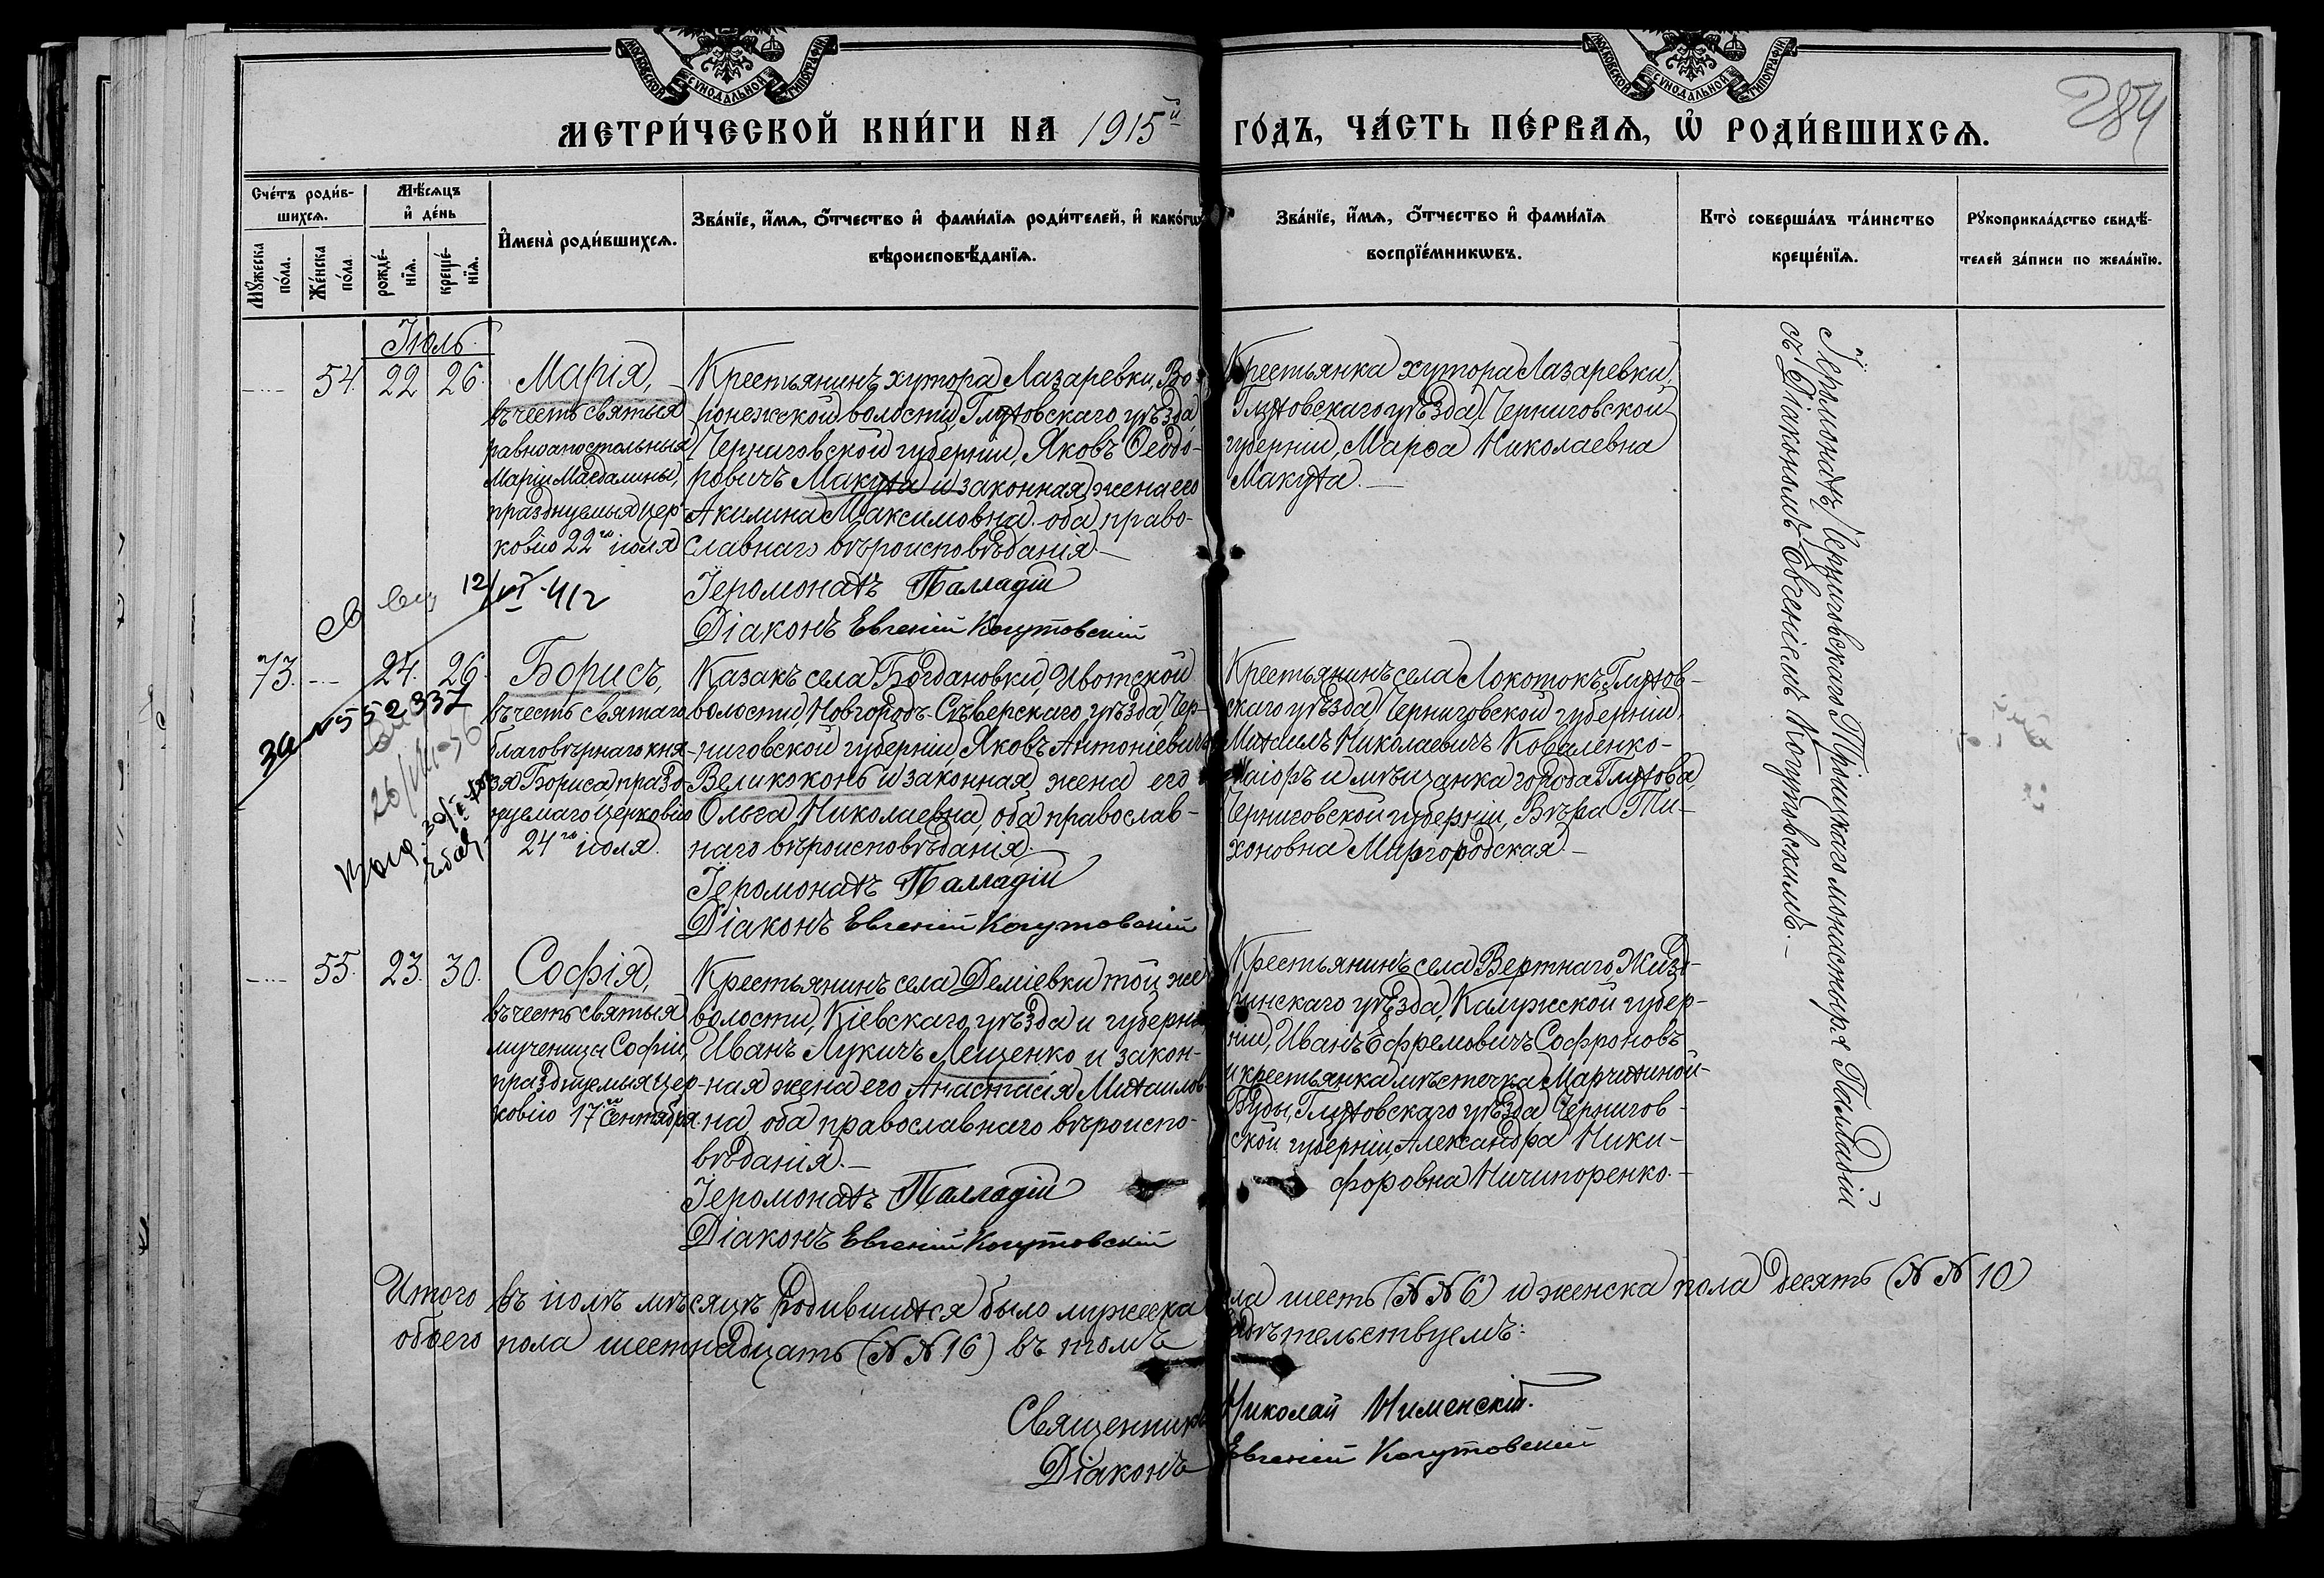 МОСКОВСКОЙ СУНОДАЛЬНОЙ ТИПОГРАФІИ
МОСКОВСКОЙ СУНОДАЛЬНОЙ ТИПОГРАФІИ
284
МЕТРИ́ЧЕСКОЙ КНИ́ГИ НА 1915й ГО́ДЪ, ЧА́СТЬ ПЕ́РВАѦ, Ѡ҆ РОДИ́ВШИХСѦ.
Сче́тъ роди́в-
шихсѧ.
Мѣ́сѧцъ
и҆ де́нь
Мꙋ́жеска
по́ла.
Же́нска
по́ла.
рожде́-
нїѧ.
креще́-
нїѧ.
И҆мена̀ роди́вшихсѧ.
Зва́нїе, и҆́мѧ, ѻ҆́тчество и҆ фами́лїѧ роди́телей, и҆ како́гѡ
вѣроисповѣ́данїѧ.
Зва́нїе, и҆́мѧ, ѻ҆́тчество и҆ фами́лїѧ
воспрїе́мникѡвъ.
Кто̀ соверша́лъ та́инство
креще́нїѧ.
Рꙋкоприкла́дство свидѣ́-
телей за́писи по жела́нїю.
Іюль.
54. 22 26.
Марія,
въ честь святыя
равноапостольныя
Маріи Магдалины,
празднуемыя цер-
ковію 22го іюля
Крестьянинъ хутора Лазаревки, Во-
ронежской волости, Глуховскаго уѣзда,
Черниговской губерніи, Яковъ Ѳеодо-
ровичъ Макуха и законная жена его
Акилина Максимовна, оба право-
славнаго вѣроисповѣданія.
Іеромонахъ Палладій
Діаконъ Евгеній Когутовскій
Крестьянка хутора Лазаревки,
Глуховскаго уѣзда, Черниговской
губерніи, Марѳа Николаевна
Макуха.
Іеромонахъ Черниговскаго Троицкаго монастыря Палладій
съ Діакономъ Евгеніемъ Когутовскимъ.
12/VI-41г
73. 24. 26.
за №552337
Борисъ,
въ честь святаго
благовѣрнаго кня-
зя Бориса, празд-
нуемаго церковію
24го іюля.
Казакъ села Богдановки, Ивотской
волости, Новгородъ-Сѣверскаго уѣзда, Чер-
ниговской губерніи, Яковъ Антоніевичъ
Великоконь и законная жена его
Ольга Николаевна, оба православ-
наго вѣроисповѣданія.
Іеромонахъ Палладій
Діаконъ Евгеній Когутовскій
Крестьянинъ села Локотокъ, Глухов-
скаго уѣзда, Черниговской губерніи,
Михаилъ Николаевичъ Коваленко-
Маіоръ и мѣщанка города Глухова,
Черниговской губерніи, Вѣра Ти-
хоновна Миргородская.
55. 23. 30.
Софія,
въ честь святыя
мученицы Софіи,
празднуемыя цер-
ковію 17го Сентября.
Крестьянинъ села Деміевки той же
волости, Кіевскаго уѣзда и губерніи,
Иванъ Лукичъ Лещенко и закон-
ная жена его Анастасія Михаилов-
на, оба православнаго вѣроиспо-
вѣданія.
Іеромонахъ Палладій
Діаконъ Евгеній Когутовскій
Крестьянинъ села Вертнаго, Жизд-
ринскаго уѣзда, Калужской губер-
ніи, Иванъ Ефремовичъ Софроновъ
и крестьянка мѣстечка Марчихиной-
Буды, Глуховскаго уѣзда, Чернигов-
ской губерніи, Александра Ники-
форовна Ничипоренко.
Итого въ іюлѣ мѣсяцѣ родившихся было мужеска пола шесть (№№ 6) и женска пола десять (№№ 10)
обоего пола шестнадцать (№№ 16) въ томъ свидѣтельствуемъ:
Священникъ Николай Нименскій.
Діаконъ Евгеній Когутовскій